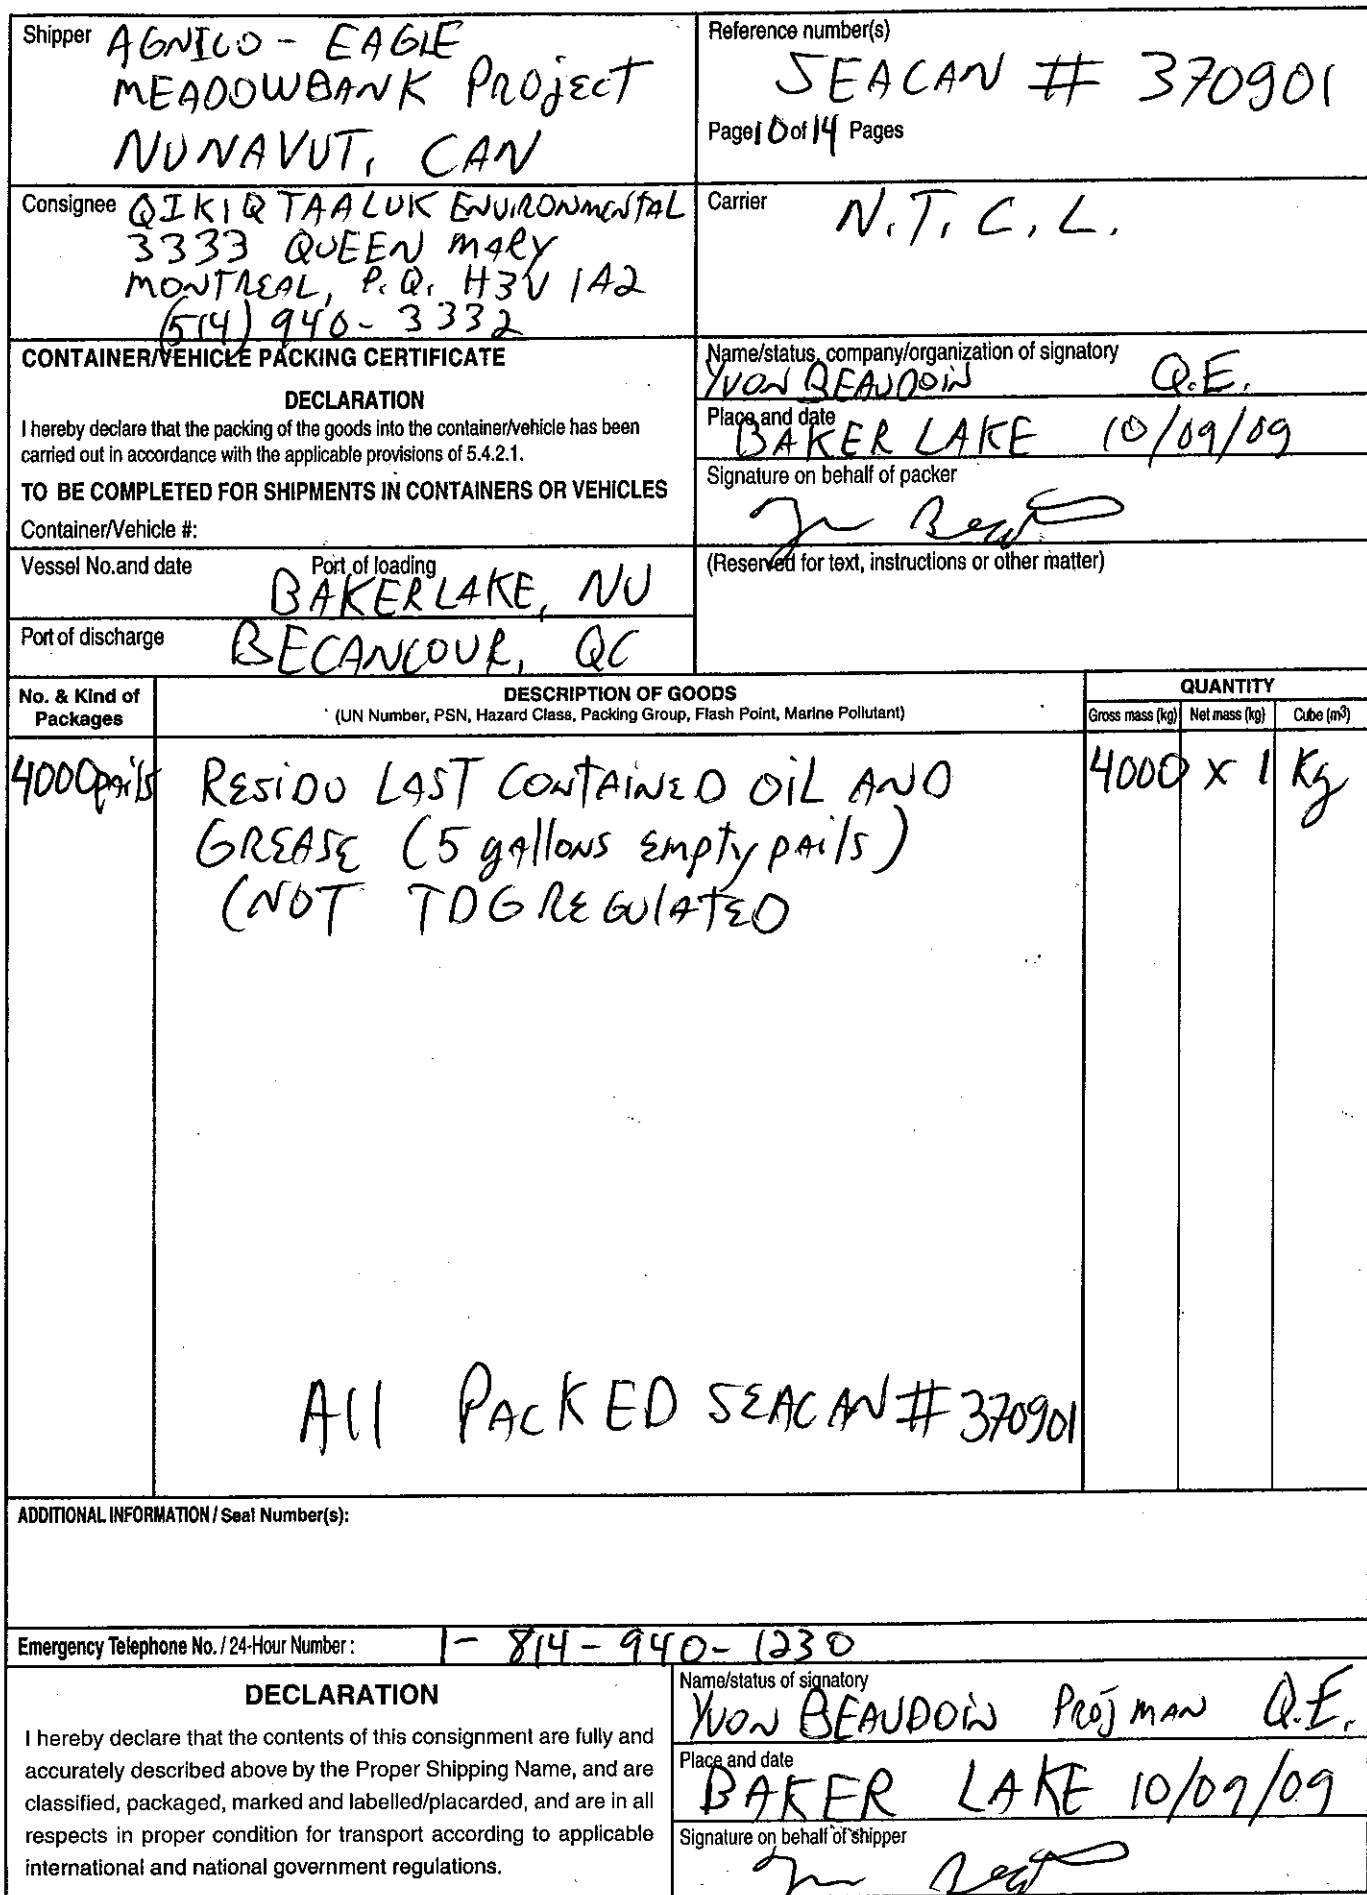 Shipper AGNICO - EAGLE
MEADOWBANK Project
NUNAVUT, CAN
Reference number(s)
SEACAN # 370901
Page 10 of 14 Pages
Consignee QIKIQTAALUK ENVIRONMENTAL
3333 QUEEN MARY
MONTREAL, P.Q. H3V 1A2
(514) 940-3332
Carrier N.T.C.L.
CONTAINER/VEHICLE PACKING CERTIFICATE
DECLARATION
I hereby declare that the packing of the goods into the container/vehicle has been
carried out in accordance with the applicable provisions of 5.4.2.1.
TO BE COMPLETED FOR SHIPMENTS IN CONTAINERS OR VEHICLES
Container/Vehicle #:
Name/status, company/organization of signatory
YVON BEAUDOIN Q.E.
Place and date
BAKER LAKE 10/09/09
Signature on behalf of packer
Vessel No.and date
Port of loading
BAKERLAKE, NU
(Reserved for text, instructions or other matter)
Port of discharge BECANCOUR, QC
No. & Kind of
Packages
DESCRIPTION OF GOODS
(UN Number, PSN, Hazard Class, Packing Group, Flash Point, Marine Pollutant)
QUANTITY
Gross mass (kg) Net mass (kg) Cube (m³)
4000 pails RESIDU LAST CONTAINED OIL AND 4000 x 1 Kg
GREASE (5 gallons empty pails)
(NOT TDG REGULATED
All PACKED SEACAN # 370901
ADDITIONAL INFORMATION / Seal Number(s):
Emergency Telephone No. / 24-Hour Number : 1-814-940-1230
DECLARATION
I hereby declare that the contents of this consignment are fully and
accurately described above by the Proper Shipping Name, and are
classified, packaged, marked and labelled/placarded, and are in all
respects in proper condition for transport according to applicable
international and national government regulations.
Name/status of signatory
YVON BEAUDOIN Proj MAN Q.E.
Place and date
BAKER LAKE 10/09/09
Signature on behalf of shipper